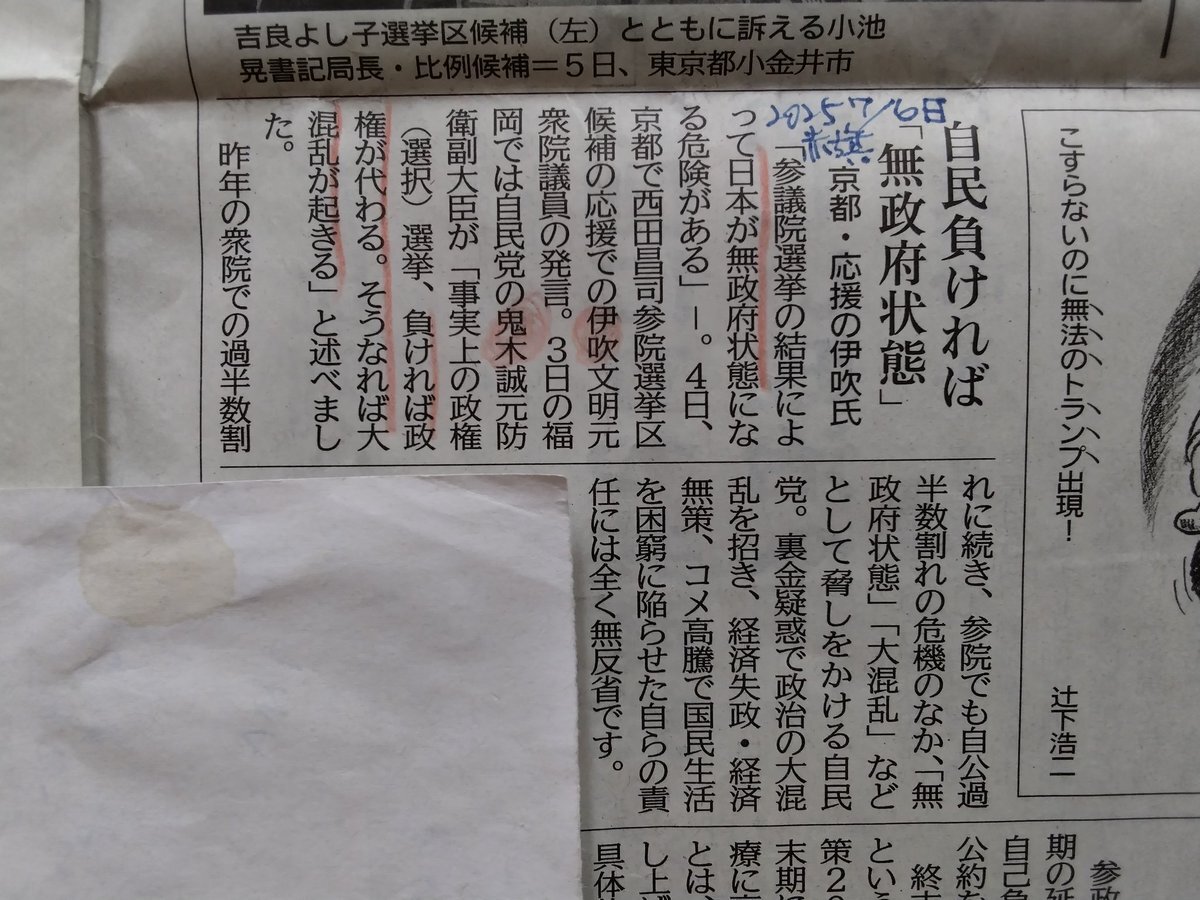 吉良よし子選挙区候補（左）とともに訴える小池
晃書記局長・比例候補＝５日、東京都小金井市
2025 7/6日
赤旗
自民負ければ
「無政府状態」
京都・応援の伊吹氏
「参議院選挙の結果によ
って日本が無政府状態にな
る危険がある」―。４日、
京都で西田昌司参院選挙区
候補の応援での伊吹文明元
衆院議員の発言。３日の福
岡では自民党の鬼木誠元防
衛副大臣が「事実上の政権
（選択）選挙、負ければ政
権が代わる。そうなれば大
混乱が起きる」と述べまし
た。
昨年の衆院での過半数割
れに続き、参院でも自公過
半数割れの危機のなか、「無
政府状態」「大混乱」など
として脅しをかける自民
党。裏金疑惑で政治の大混
乱を招き、経済失政・経済
無策、コメ高騰で国民生活
を困窮に陥らせた自らの責
任には全く無反省です。
こすらないのに無法のトランプ出現！
辻下浩二
参政
期の延
自己負
公約な
終末
という
策２０
末期に
療に
とは、
し上げ
具体